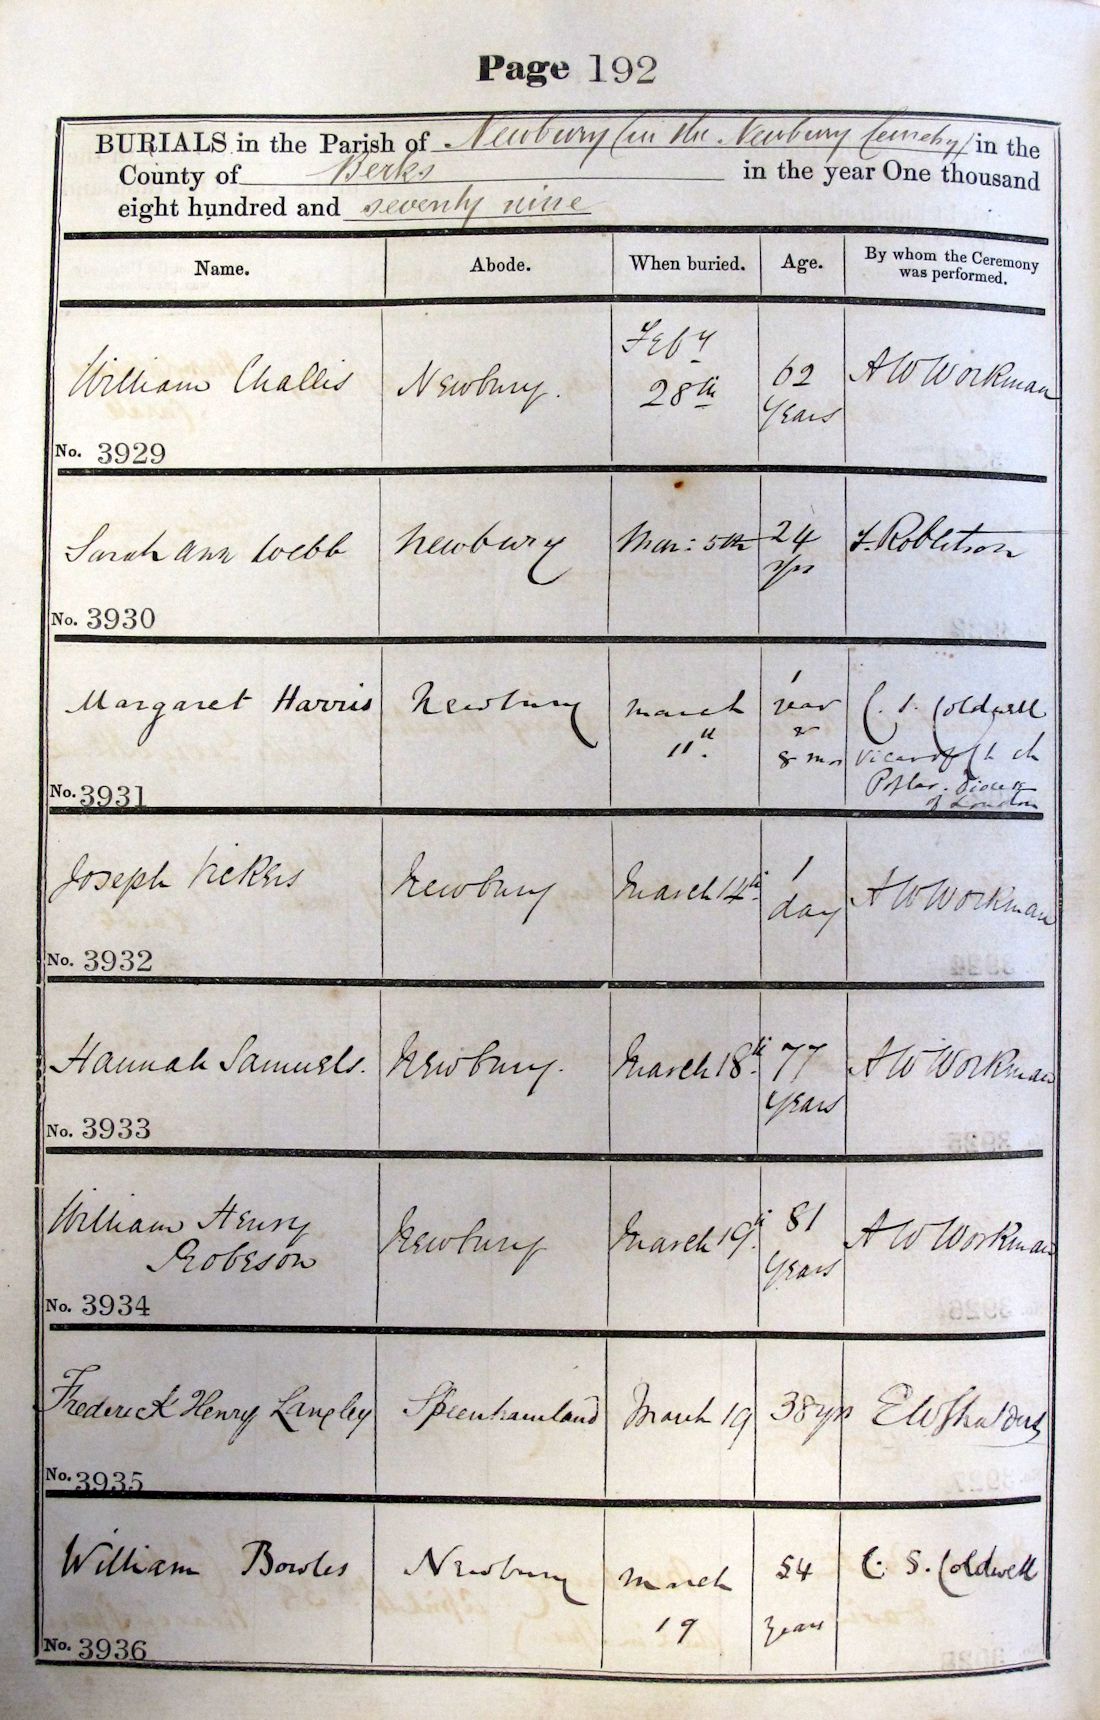 Page 192
BURIALS in the Parish of Newbury (in the Newbury Cemetery) in the
County of Berks in the year One thousand
eight hundred and seventy nine
Name. Abode. When buried. Age. By whom the Ceremony
was performed.
William Challis Newbury. Feby 28th 62 Years A W Workman
No. 3929
Sarah Ann Webb Newbury Mar: 5th 24 yrs Robertson
No. 3930
Margaret Harris Newbury March 11th. 1 year & 8 mos C. S. Coldwell
Vicar of Ch Ch
Poplar. Diocese
of London
No. 3931
Joseph Vickers Newbury March 14th 1 day A W Workman
No. 3932
Hannah Samuels. Newbury. March 18th. 77 Years A W Workman
No. 3933
William Henry
Robeson Newbury March 19th. 81 Years A W Workman
No. 3934
Frederick Henry Langley Speenhamland March 19 38 yrs
No. 3935
William Bowles Newbury March 19 54 years C. S. Coldwell
No. 3936